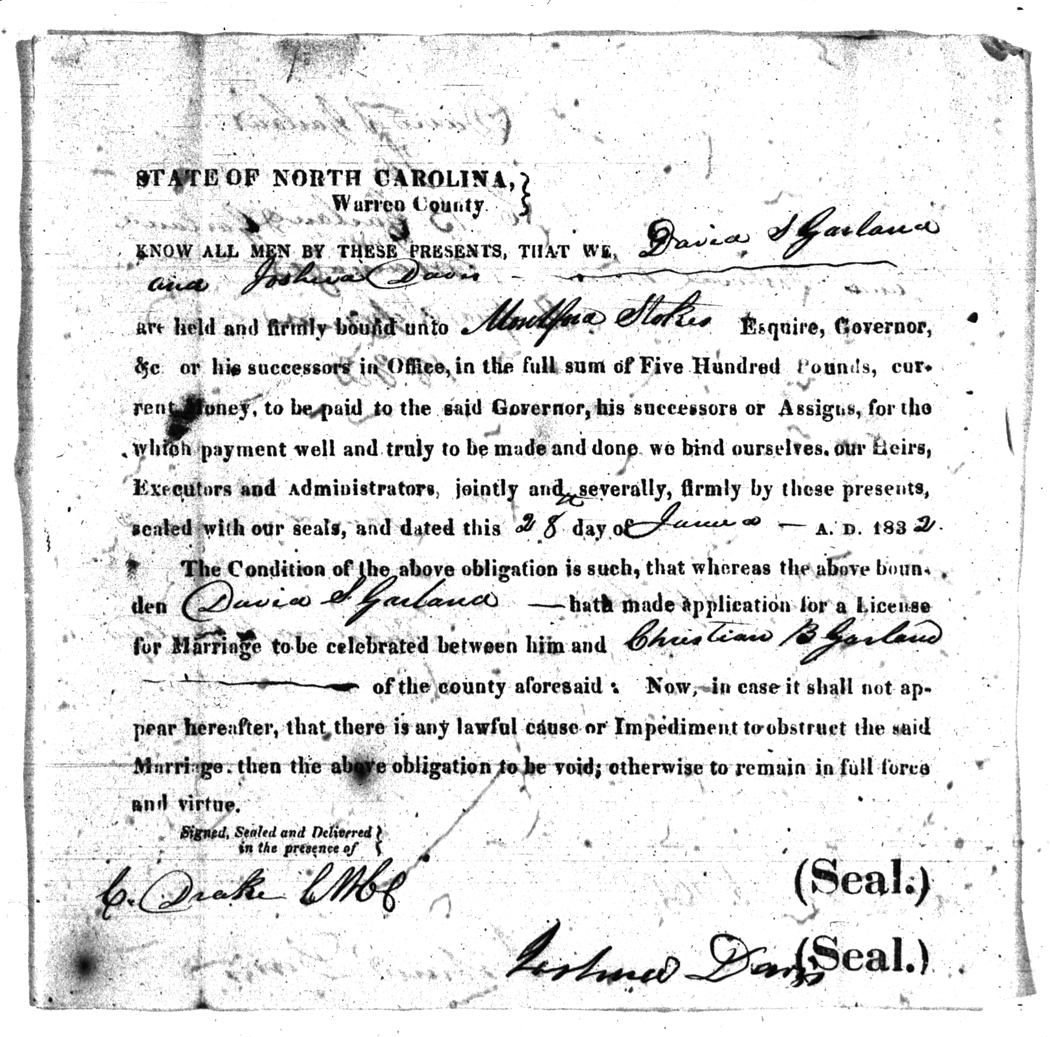 STATE OF NORTH CAROLINA,
Warren County
KNOW ALL MEN BY THESE PRESENTS, THAT WE, David S Garland
and Joshua Davis
are held and firmly bound unto Montford Stokes Esquire, Governor,
&c or his successors in Office, in the full sum of Five Hundred Pounds, cur-
rent Money, to be paid to the said Governor, his successors or Assigns, for the
which payment well and truly to be made and done we bind ourselves, our Heirs,
Executors and Administrators, jointly and severally, firmly by these presents,
sealed with our seals, and dated this 28 day of A. D. 1832.
The Condition of the above obligation is such, that whereas the above boun-
den David S Garland hath made application for a License
for Marriage to be celebrated between him and Christian B Garland
of the county aforesaid: Now, in case it shall not ap-
pear hereafter, that there is any lawful cause or Impediment to obstruct the said
Marriage, then the above obligation to be void; otherwise to remain in full force
and virtue.
Signed, Sealed and Delivered
in the presence of
C. Drake CWCC
(Seal.)
Joshua Davis (Seal.)